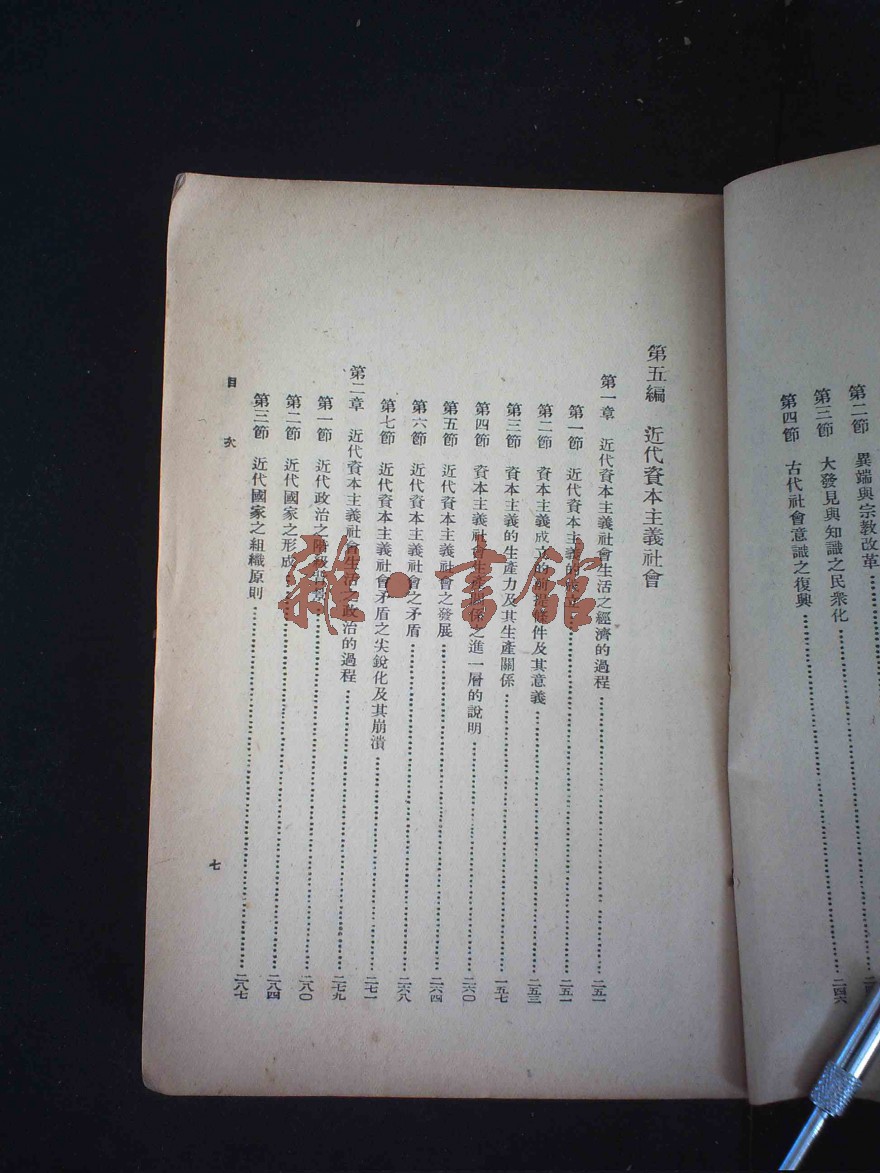 第二節 異端與宗教改革
第三節 大發見與知識之民衆化
第四節 古代社會意識之復興 二四六
第五編 近代資本主義社會
第一章 近代資本主義社會生活之經濟的過程 二五一
第一節 近代資本主義的 二五一
第二節 資本主義成立的前提條件及其意義 二五三
第三節 資本主義的生產力及其生產關係 一五七
第四節 資本主義社會生產關係之進一層的說明 二六〇
第五節 近代資本主義社會之發展 二六四
第六節 近代資本主義社會之矛盾 二六八
第七節 近代資本主義社會矛盾之尖銳化及其崩潰 二七一
第二章 近代資本主義社會生活之政治的過程 二七九
第一節 近代政治之階級背景 二八〇
第二節 近代國家之形成 二八四
第三節 近代國家之組織原則 二八七
目次
七
雜·書館